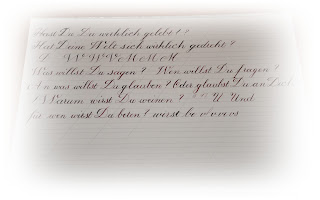 Hast Du Du wirklich gelebt? ?
Hat Deine Welt sich wirklich gedreht?
D W W W M M M M
Was willst Du sagen? Wen willst Du fragen?
An was willst Du glauben? Oder glaubst Du an
Warum wirst Du weinen? U Und
für wen wirst Du beten? werst be v/v v v s